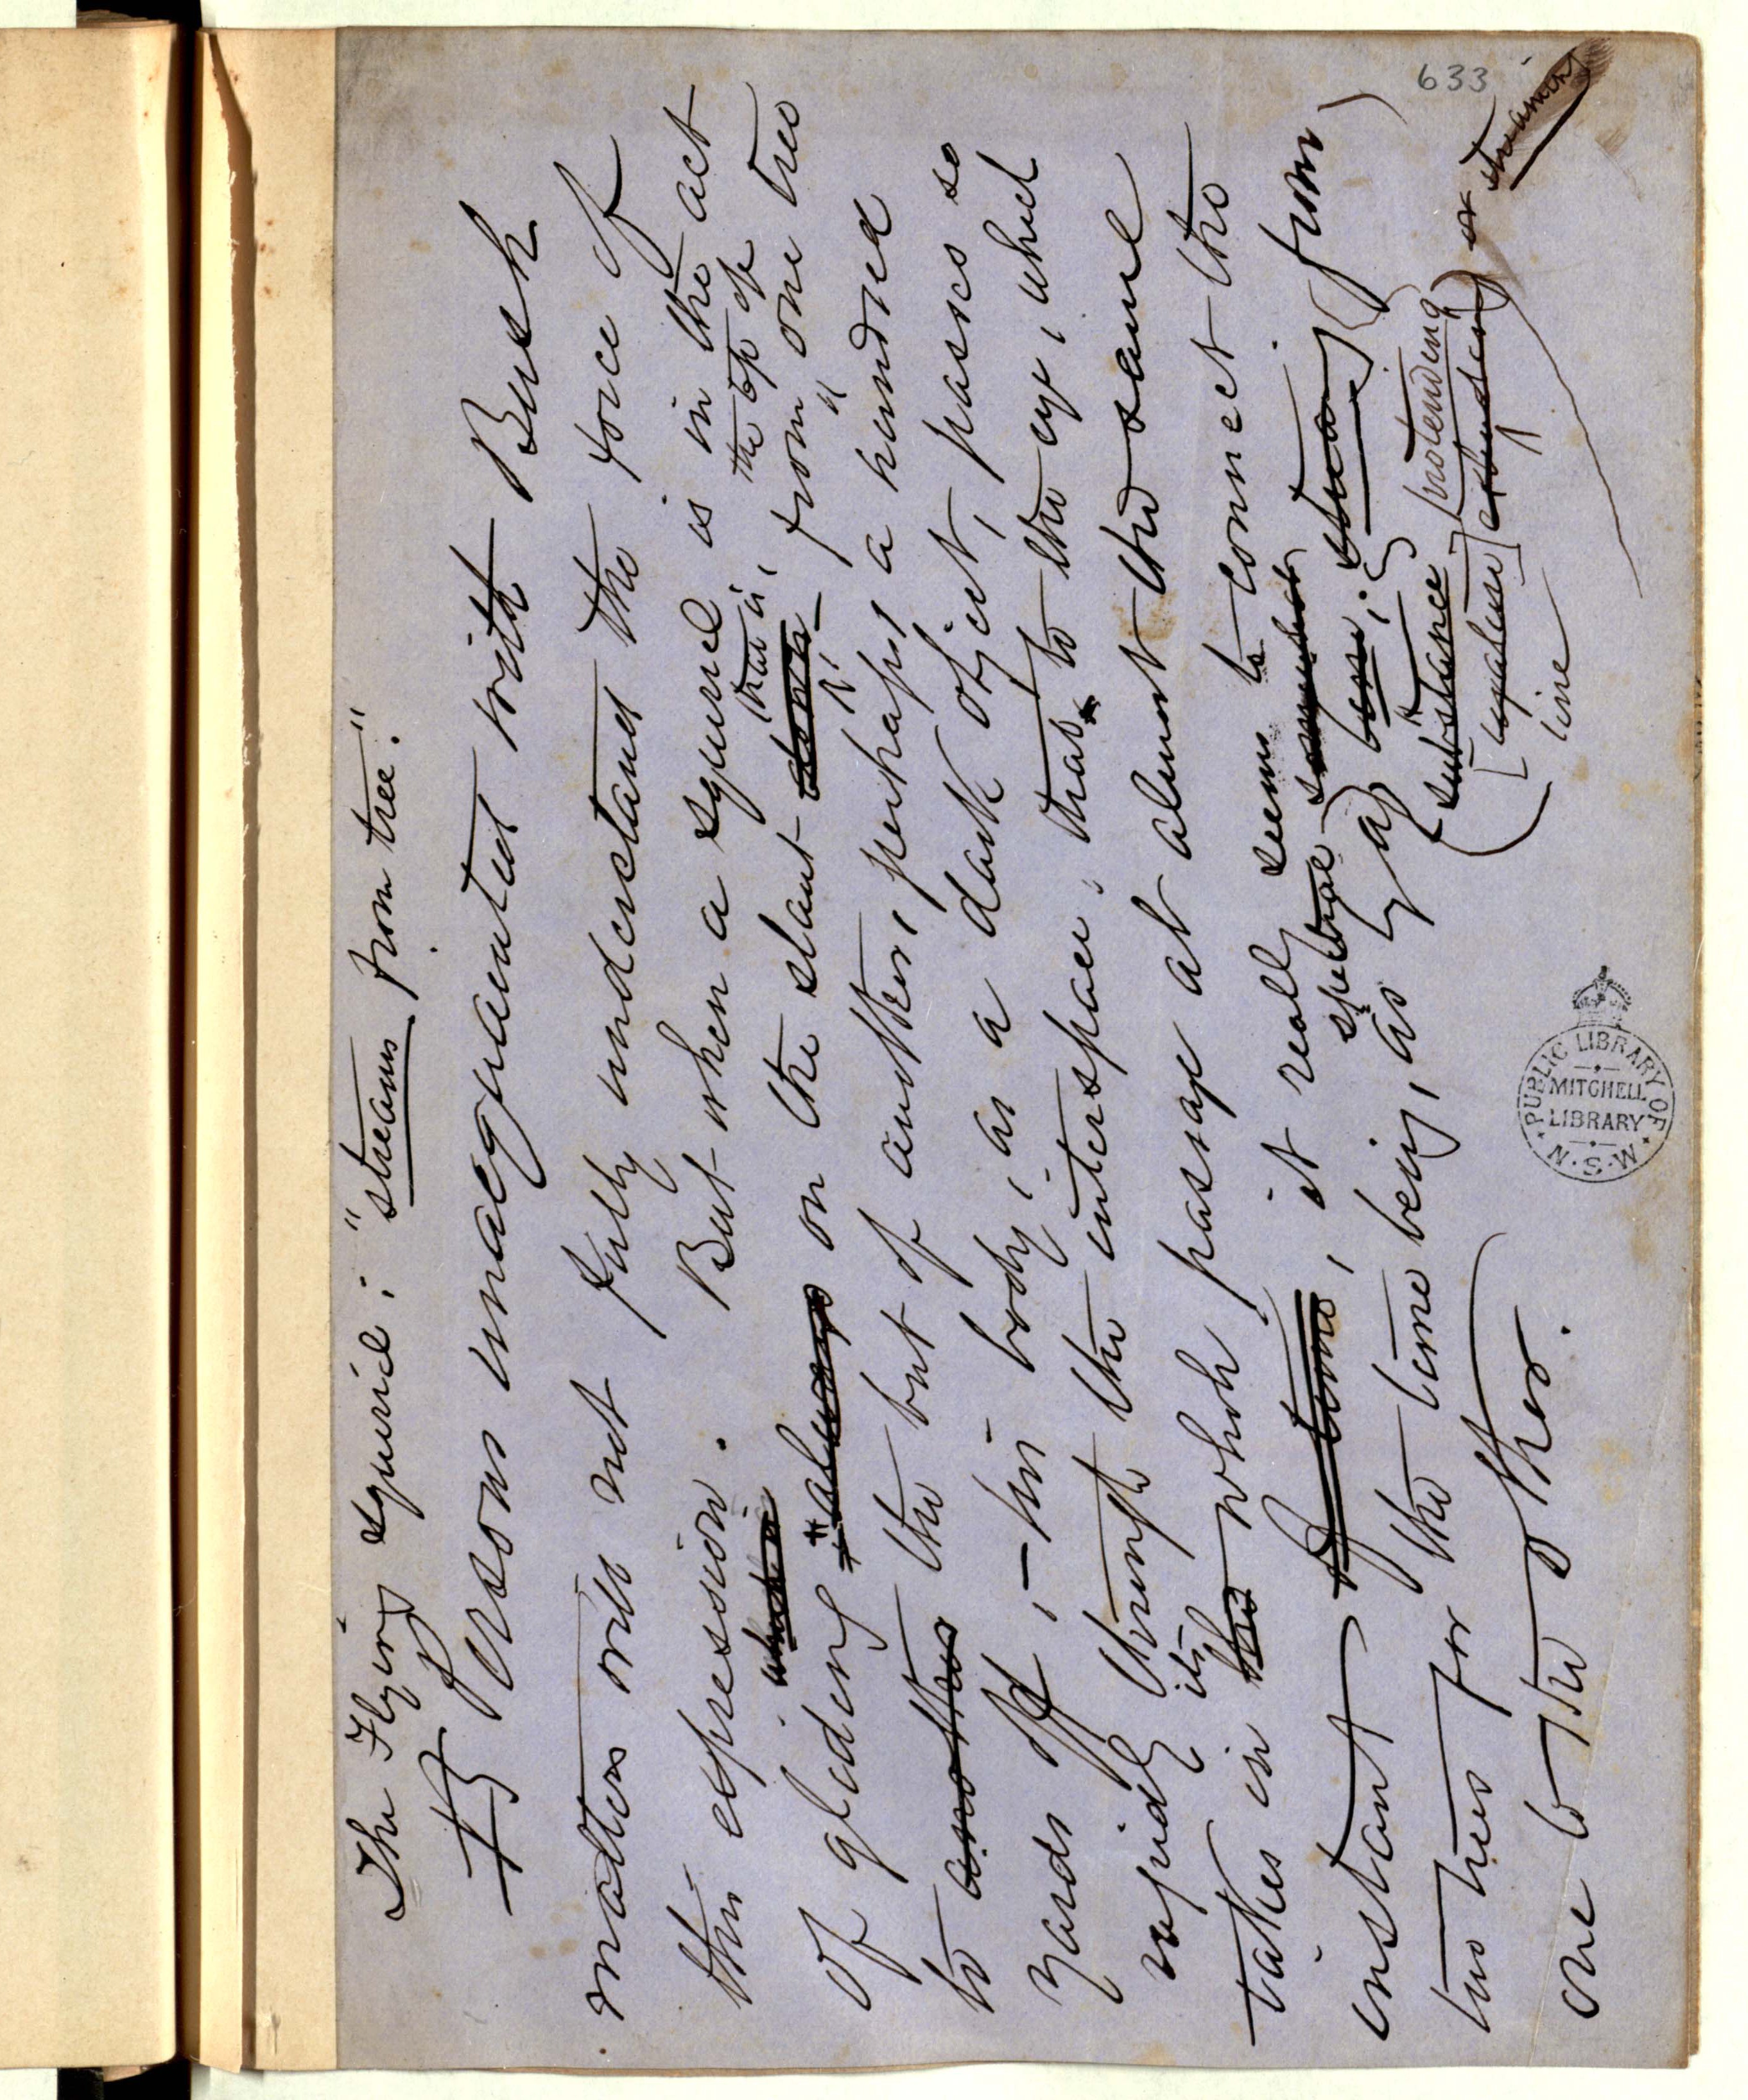 The Flying squirrel: "streams from tree."
Persons unacquainted with Bush
matters will not fully understand the force of
this expression. But when a squirrel is in the act
that is, the top of
of gliding "always on the slant from one tree
to another the but of another, perhaps a hundred
yards off,—his body, as a dark object, passes so
rapidly through the interspace, that to the eye, which
its
takes in his whole passage at almost the same
instant of time, it really seems to connect the
spectral somewhat
two trees for the time being, as by a beam; stream from
substance protending
line
or streaming
one to the other.
633
PUBLIC LIBRARY OF
MITCHELL
LIBRARY
N.S.W.